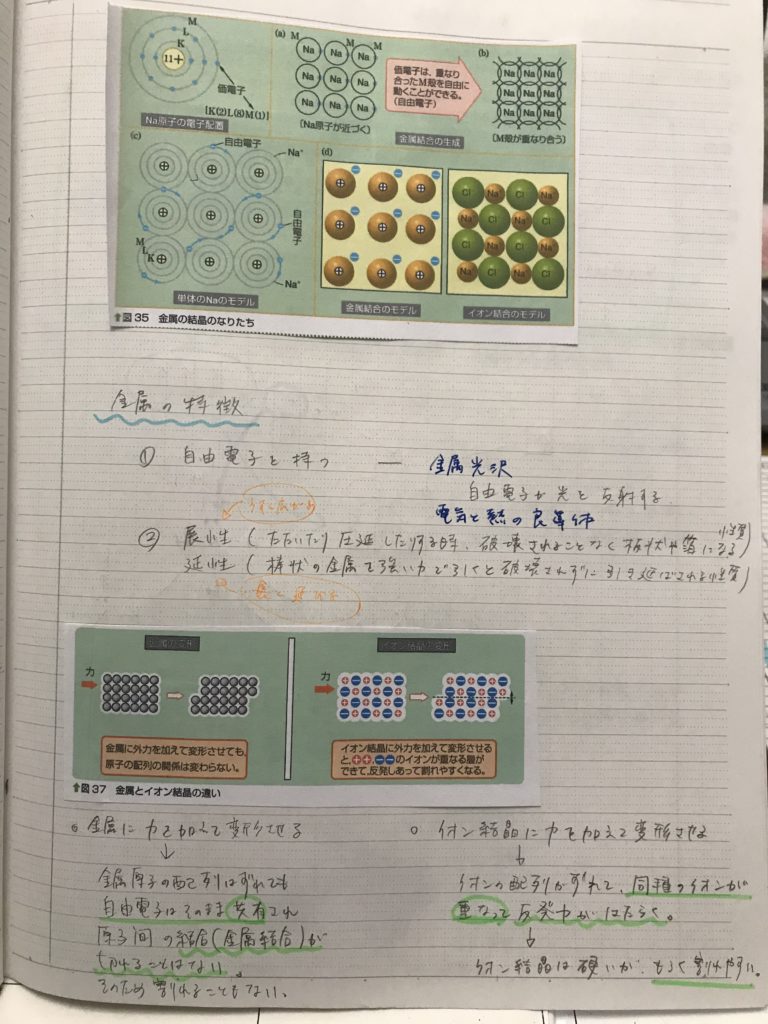 M
L
K
11+
価電子
[K(2)L(8)M(1)]
Na原子の電子配置
(a) M M M
Na Na Na
Na Na Na
Na Na Na
[Na原子が近づく]
価電子は、重なり
合ったM殻を自由に
動くことができる。
(自由電子)
金属結合の生成
(b)
Na Na Na
Na Na Na
Na Na Na
[M殻が重なり合う]
(c)
自由電子
Na⁺
自由
電子
M
L
K
Na⁺
単体のNaのモデル
(d)
金属結合のモデル
Cl⁻ Na⁺ Cl⁻ Na⁺
Na⁺ Cl⁻ Na⁺ Cl⁻
Cl⁻ Na⁺ Cl⁻ Na⁺
Na⁺ Cl⁻ Na⁺ Cl⁻
イオン結合のモデル
⬆図35 金属の結晶のなりたち
金属の特徴
① 自由電子を持つ ― 金属光沢
自由電子が光を反射する
電気と熱の良導体
うすく広がる
② 展性(たたいたり圧延したりする時、破壊されることなく板状や箔になる性質)
延性(棒状の金属を強い力で引くと破壊されずに引き延ばされる性質)
長く延びる
金属の変形
力
金属に外力を加えて変形させても、
原子の配列の関係は変わらない。
イオン結晶の変形
力
イオン結晶に外力を加えて変形させる
と、++、−−のイオンが重なる層が
できて、反発しあって割れやすくなる。
⬆図37 金属とイオン結晶の違い
○ 金属に力を加えて変形させる
↓
金属原子の配列はずれても
自由電子はそのまま共有され
原子間の結合(金属結合)が
切れることはない。
そのため割れることもない。
○ イオン結晶に力を加えて変形させる
↓
イオンの配列がずれて、同種のイオンが
重なって反発力がはたらく。
↓
イオン結晶は硬いが、もろく割れやすい。